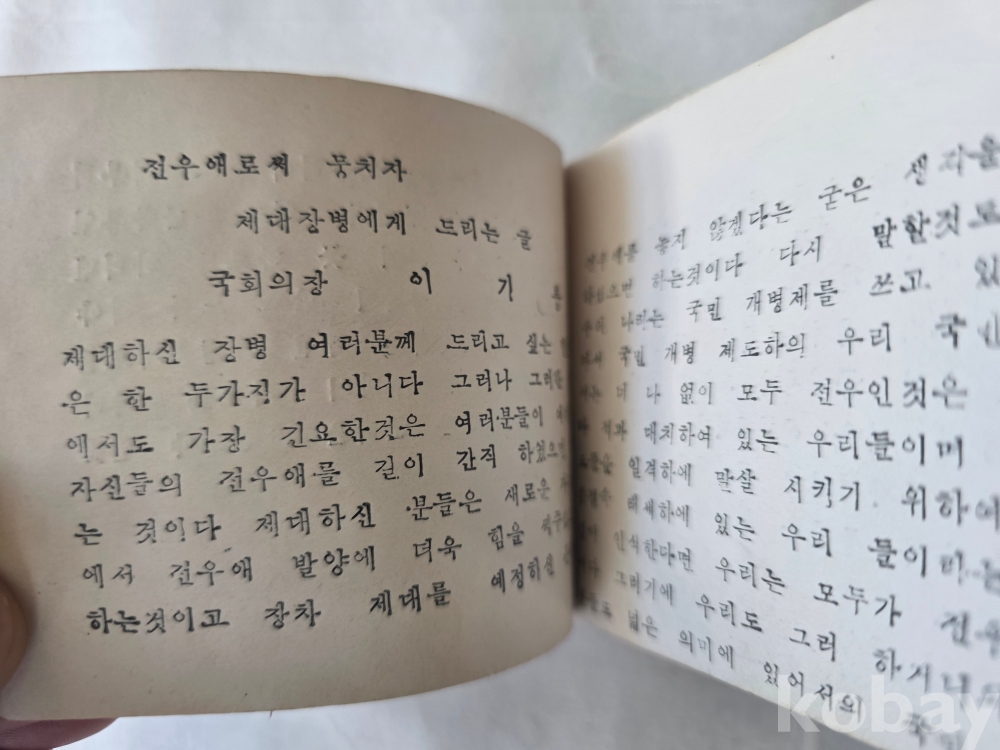 전우애로써 뭉치자
제대장병에게 드리는 글
국회의장 이 기 붕
제대하신 장병 여러분께 드리고 싶는
은 한 두가지가 아니다 그러나 그러
에서도 가장 긴요한것은 여러분들이
자신들의 전우애를 길이 간직 하였으면
는 것이다 제대하신 분들은 새로운
에서 전우애 발양에 더욱 힘을
하는것이고 장차 제대를 예정하신
전우애를 놓지 않겠다는 굳은 생각을
하는것이다 다시 말할것도
나라는 국민 개병제를 쓰고 있
국민 개병 제도하의 우리 국민
너 나 없이 모두 전우인것은
적과 대치하여 있는 우리들이며
일격하에 말살 시키기 위하여
태세하에 있는 우리 들이
인식한다면 우리는 모두가 전우
그러기에 우리도 그러 하거니
넓은 의미에 있어서의
kobay